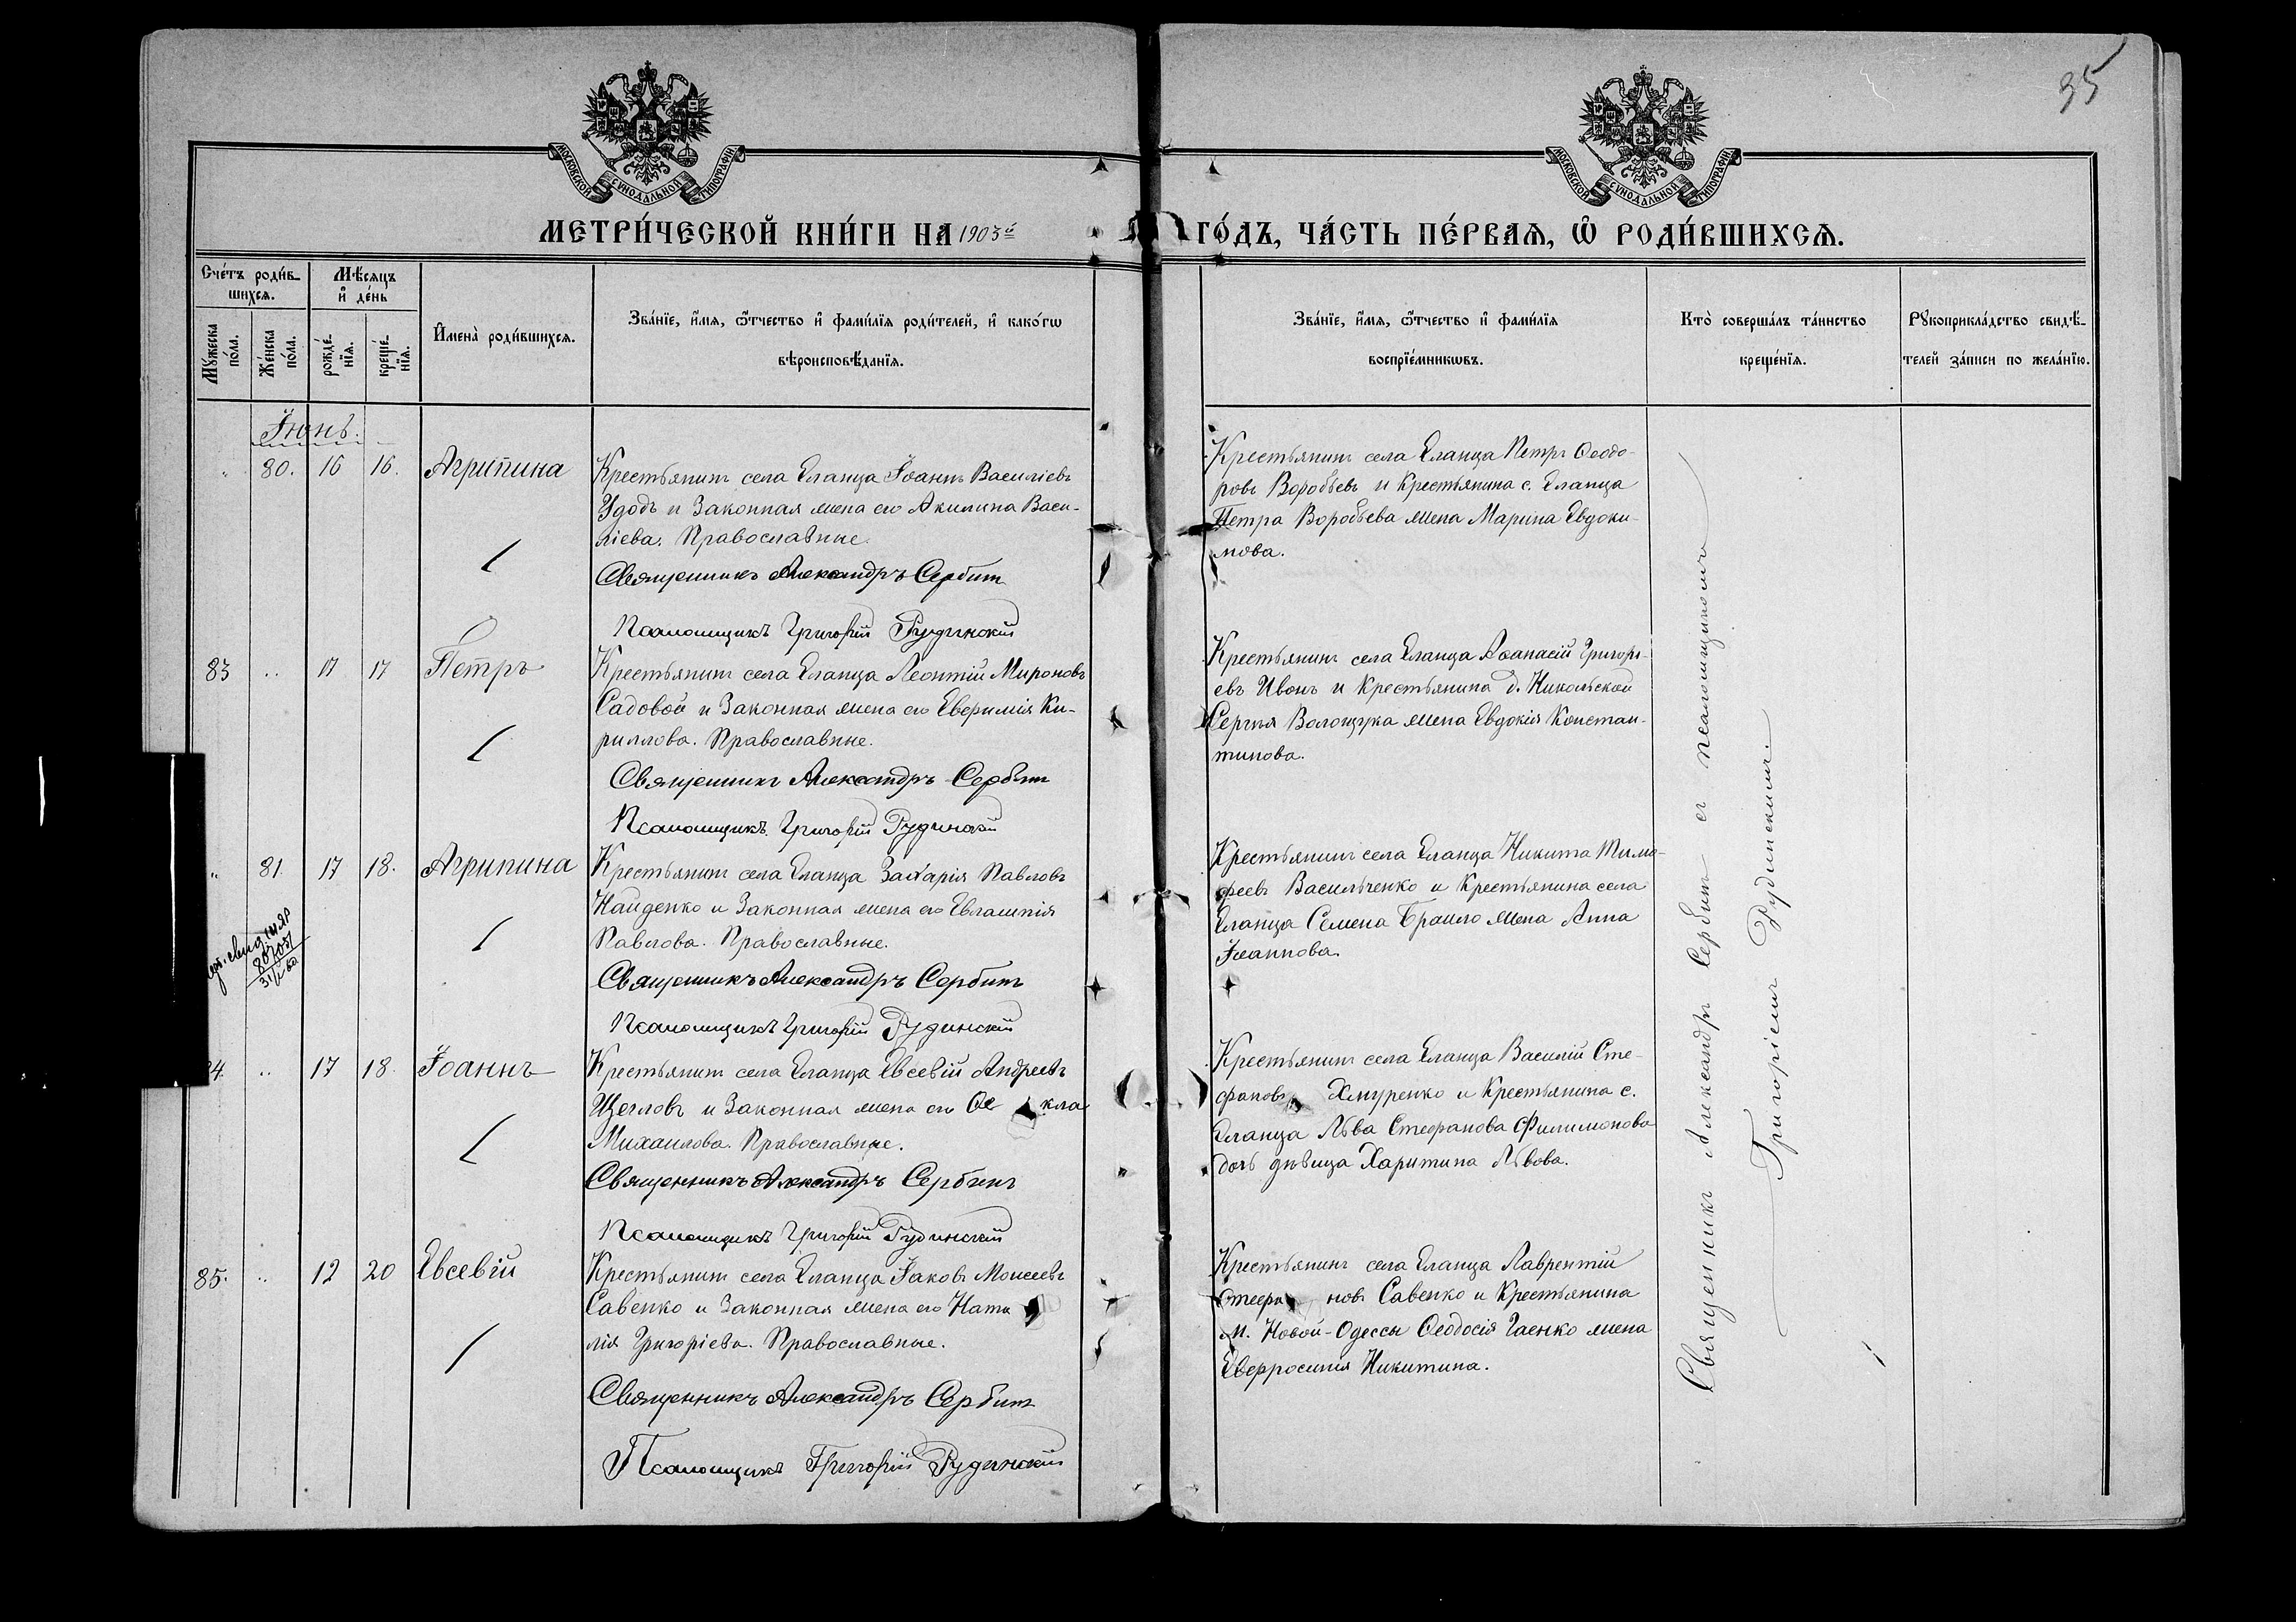 35
МОСКОВСКОЙ СѴНОДАЛЬНОЙ ТИПОГРАФІИ
МОСКОВСКОЙ СѴНОДАЛЬНОЙ ТИПОГРАФІИ
МЕТРИ́ЧЕСКОЙ КНИ́ГИ НА 1903й
ГО́ДЪ, ЧА́СТЬ ПЕ́РВАЯ, Ѡ РОДИ́ВШИХСЯ.
Сче́тъ роди́в-
шихся.
Мѣ́сяцъ
и҆ де́нь
Мꙋжеска по́ла.
Же́нска по́ла.
рожде́нїя.
креще́нїя.
И҆мена̀ роди́вшихся.
Зва́нїе, и҆́мя, ѻ҆́тчество и҆ фами́лїя роди́телей, и҆ како́гѡ
вѣроисповѣ́данїя.
Зва́нїе, и҆́мя, ѻ҆́тчество и҆ фами́лїя
воспрїе́мникѡвъ.
Кто̀ соверша́лъ та́инство
креще́нїя.
Рꙋкоприкла́дство свидѣ́-
телей за́писи по жела́нїю.
Іюнь.
" 80. 16 16. Агрипина
Крестьянинъ села Еланца Іоаннъ Василіевъ
Удодъ и Законная жена его Акилина Васи-
ліева. Православные.
Священникъ Александръ Сербинъ
Псаломщикъ Григорій Рудинскій
Крестьянинъ села Еланца Петръ Ѳеодо-
ровъ Воробьевъ и Крестьянина с. Еланца
Петра Воробьева жена Марина Евдоки-
мова.
83 .. 17 17 Петръ
Крестьянинъ села Еланца Леонтій Мироновъ
Садовой и Законная жена его Евфимія Ки-
риллова. Православные.
Священникъ Александръ Сербинъ
Псаломщикъ Григорій Рудинскій
Крестьянинъ села Еланца Аѳанасій Григорі-
евъ Ивонъ и Крестьянина д. Никольской
Сергія Волощука жена Евдокія Констан-
тинова.
" 81. 17 18. Агрипина
Крестьянинъ села Еланца Захарія Павловъ
Найденко и Законная жена его Евлампія
Павлова. Православные.
Священникъ Александръ Сербинъ
Псаломщикъ Григорій Рудинскій
Крестьянинъ села Еланца Никита Тимо-
феевъ Васильченко и Крестьянина села
Еланца Семена Браило жена Анна
Іоаннова.
4 .. 17 18. Іоаннъ
Крестьянинъ села Еланца Евсевій Андреевъ
Щегловъ и Законная жена его Ѳе кла
Михаилова. Православные.
Священникъ Александръ Сербинъ
Псаломщикъ Григорій Рудинскій
Крестьянинъ села Еланца Василій Сте-
фановъ Хмуренко и Крестьянина с.
Еланца Льва Стефанова Филимонова
дочь дѣвица Харитина Львова.
85. .. 12 20 Евсевій
Крестьянинъ села Еланца Іаковъ Моисеевъ
Савенко и Законная жена его Ната
лія Григоріева. Православные.
Священникъ Александръ Сербинъ
Псаломщикъ Григорій Рудинскій
Крестьянинъ села Еланца Лаврентій
Стефа новъ Савенко и Крестьянина
м. Новой-Одессы Ѳеодосія Гаенко жена
Евфросинія Никитина.
Священникъ Александръ Сербинъ съ псаломщикомъ
Григоріемъ Рудинскимъ.